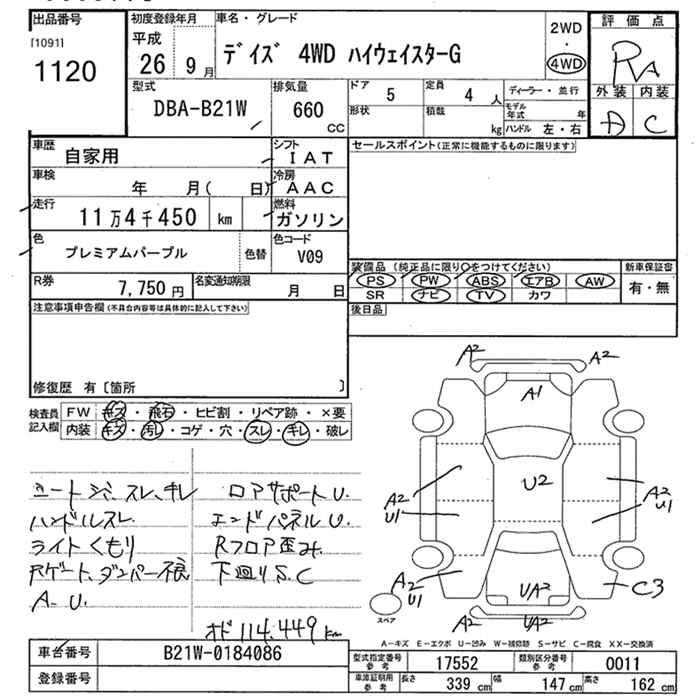 出品番号
[1091]
1120
初度登録年月
平成
26 9月
車名・グレード
デイズ 4WD ハイウェイスターG
2WD
・
4WD
評価点
RA
外装 内装
A C
型式
DBA-B21W
排気量
660
CC
ドア 5
定員 4 人
形状
積載 kg
ディーラー・並行
モデル年式 年
ハンドル 左・右
車歴 自家用
シフト
IAT
セールスポイント(正常に機能するものに限ります)
車検 年 月( 日)
冷房
AAC
走行 11万4千450 km
燃料
ガソリン
色 プレミアムパープル 色替
色コード
V09
装備品 (純正品に限り○をつけてください)
新車保証書
PS PW ABS エアB AW
有・無
SR ナビ TV カワ
R券 7,750円
名変通知期限 月 日
後日品
注意事項申告欄(不具合内容等は具体的に記入して下さい)
修復歴 有[箇所 ]
検査員
記入欄
FW キズ・飛石・ヒビ割・リペア跡・×要
内装 キズ・汚レ・コゲ・穴・スレ・キレ・破レ
シートシミ、スレ、キレ
ハンドルスレ
ライトくもり
Rゲート、ダンパー不良
A.U.
ロアサポートU.
エンドパネルU.
Rフロア歪み.
下廻りS.C
オド114.449km
A2
A2
A1
U2
A2
U1
A2
U1
A2
U1
C3
UA2
A2
UA2
スペア
A-キズ E-エクボ U-凹み W-補修跡 S-サビ C-腐食 XX-交換済
車台番号 B21W-0184086
登録番号
型式指定番号
参考
17552
類別区分番号
参考
0011
車庫証明用
参考
長さ 339cm 幅 147cm 高さ 162cm